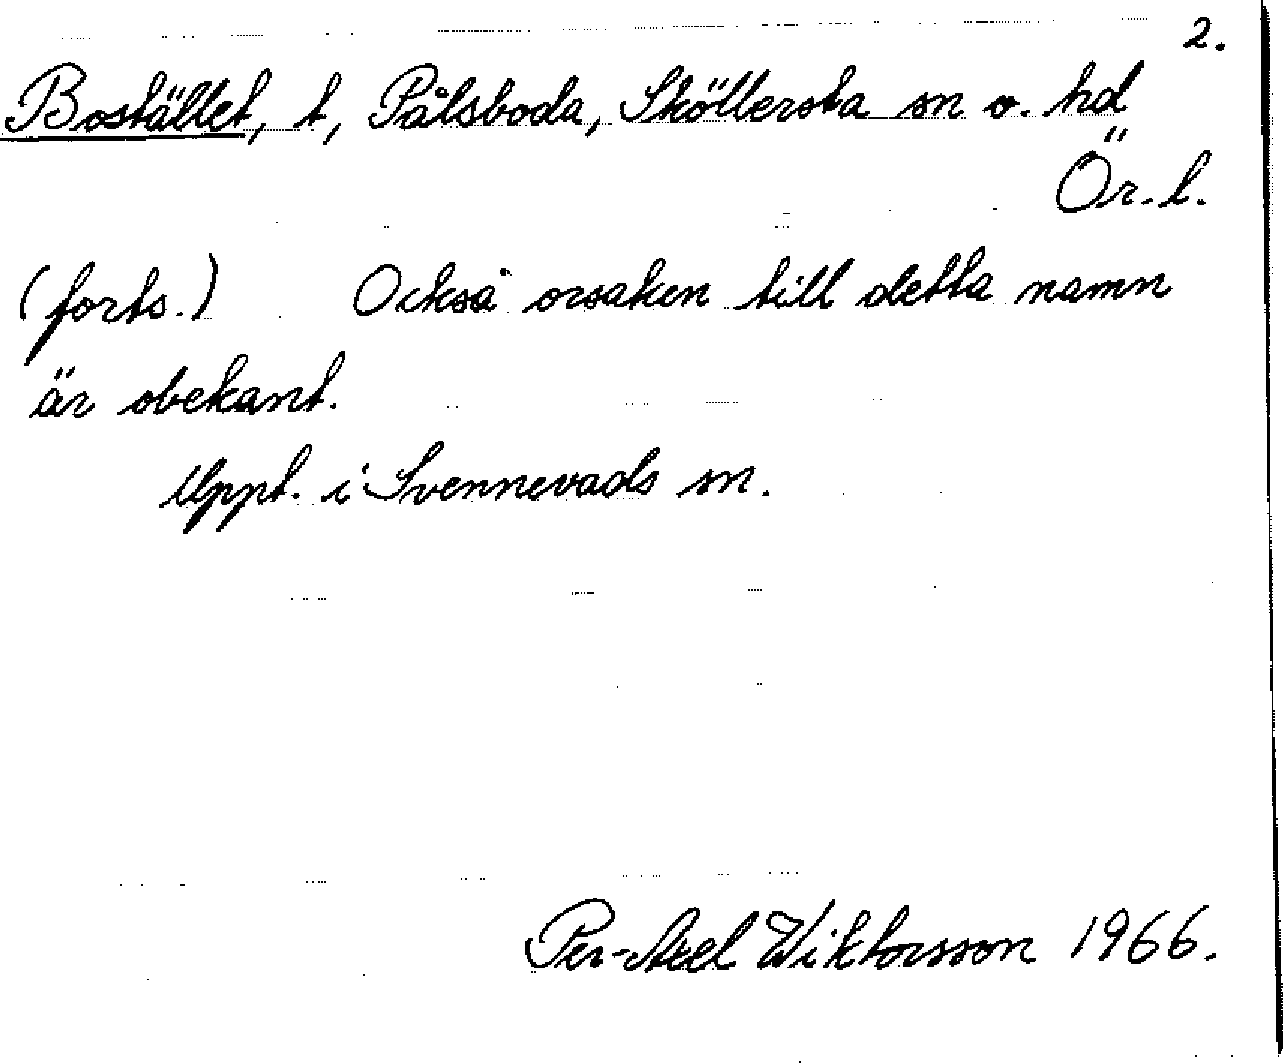 2.
Bostället, t, Pålsboda, Sköllersta sn o. hd
Ör. l.
(forts.) Också orsaken till detta namn
är obekant.
Uppt. i Svennevads sn.
Per-Axel Wiktorsson 1966.